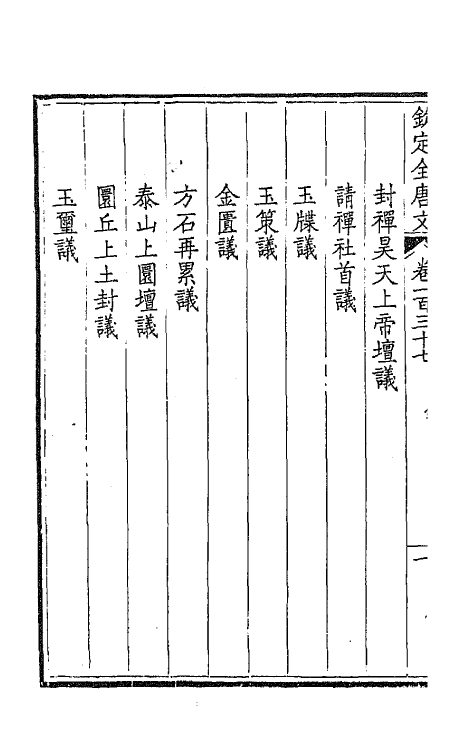 欽定全唐文 卷一百三十七 一
封禪昊天上帝壇議
請禪社首議
玉牒議
玉策議
金匱議
方石再累議
泰山上圜壇議
圜丘上土封議
玉璽議